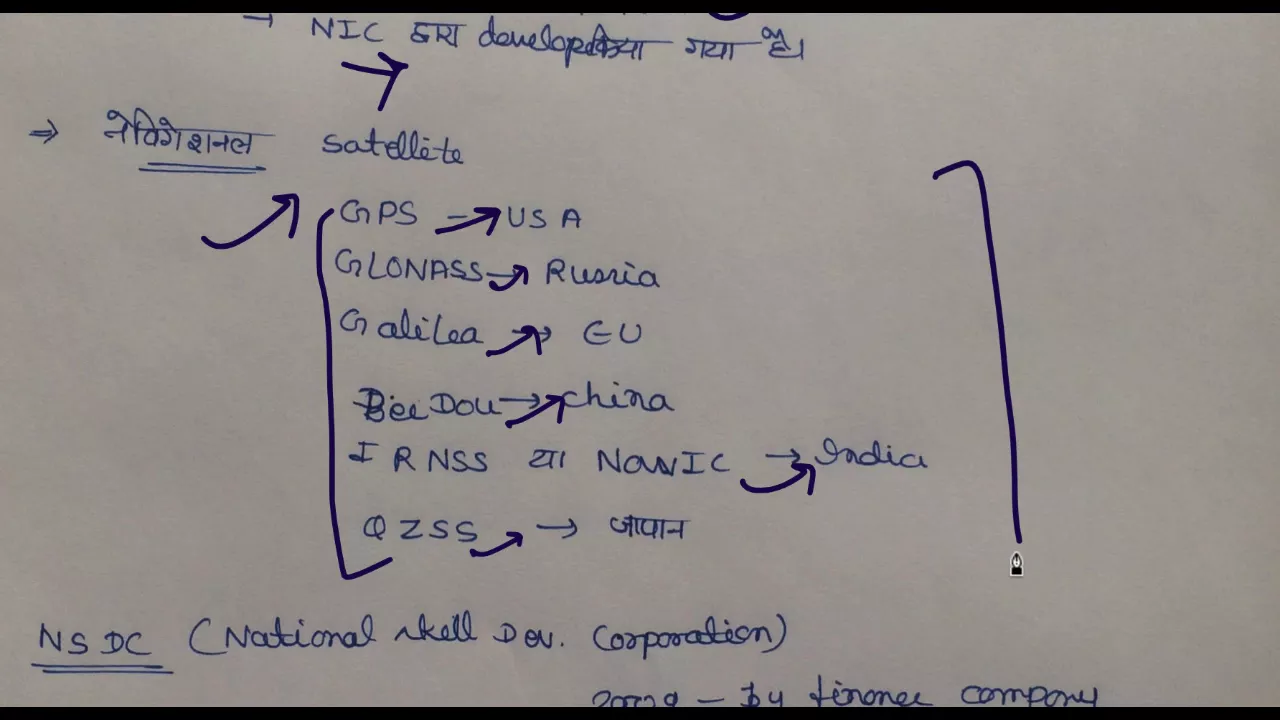 → NIC द्वारा developकिया गया है।
⇒ नेविगेशनल satellite
GPS → USA
GLONASS → Russia
Galilea → EU
BeiDou → China
IRNSS या NavIC → India
QZSS → जापान
NSDC (National skell Dev. Corporation)
by finance company